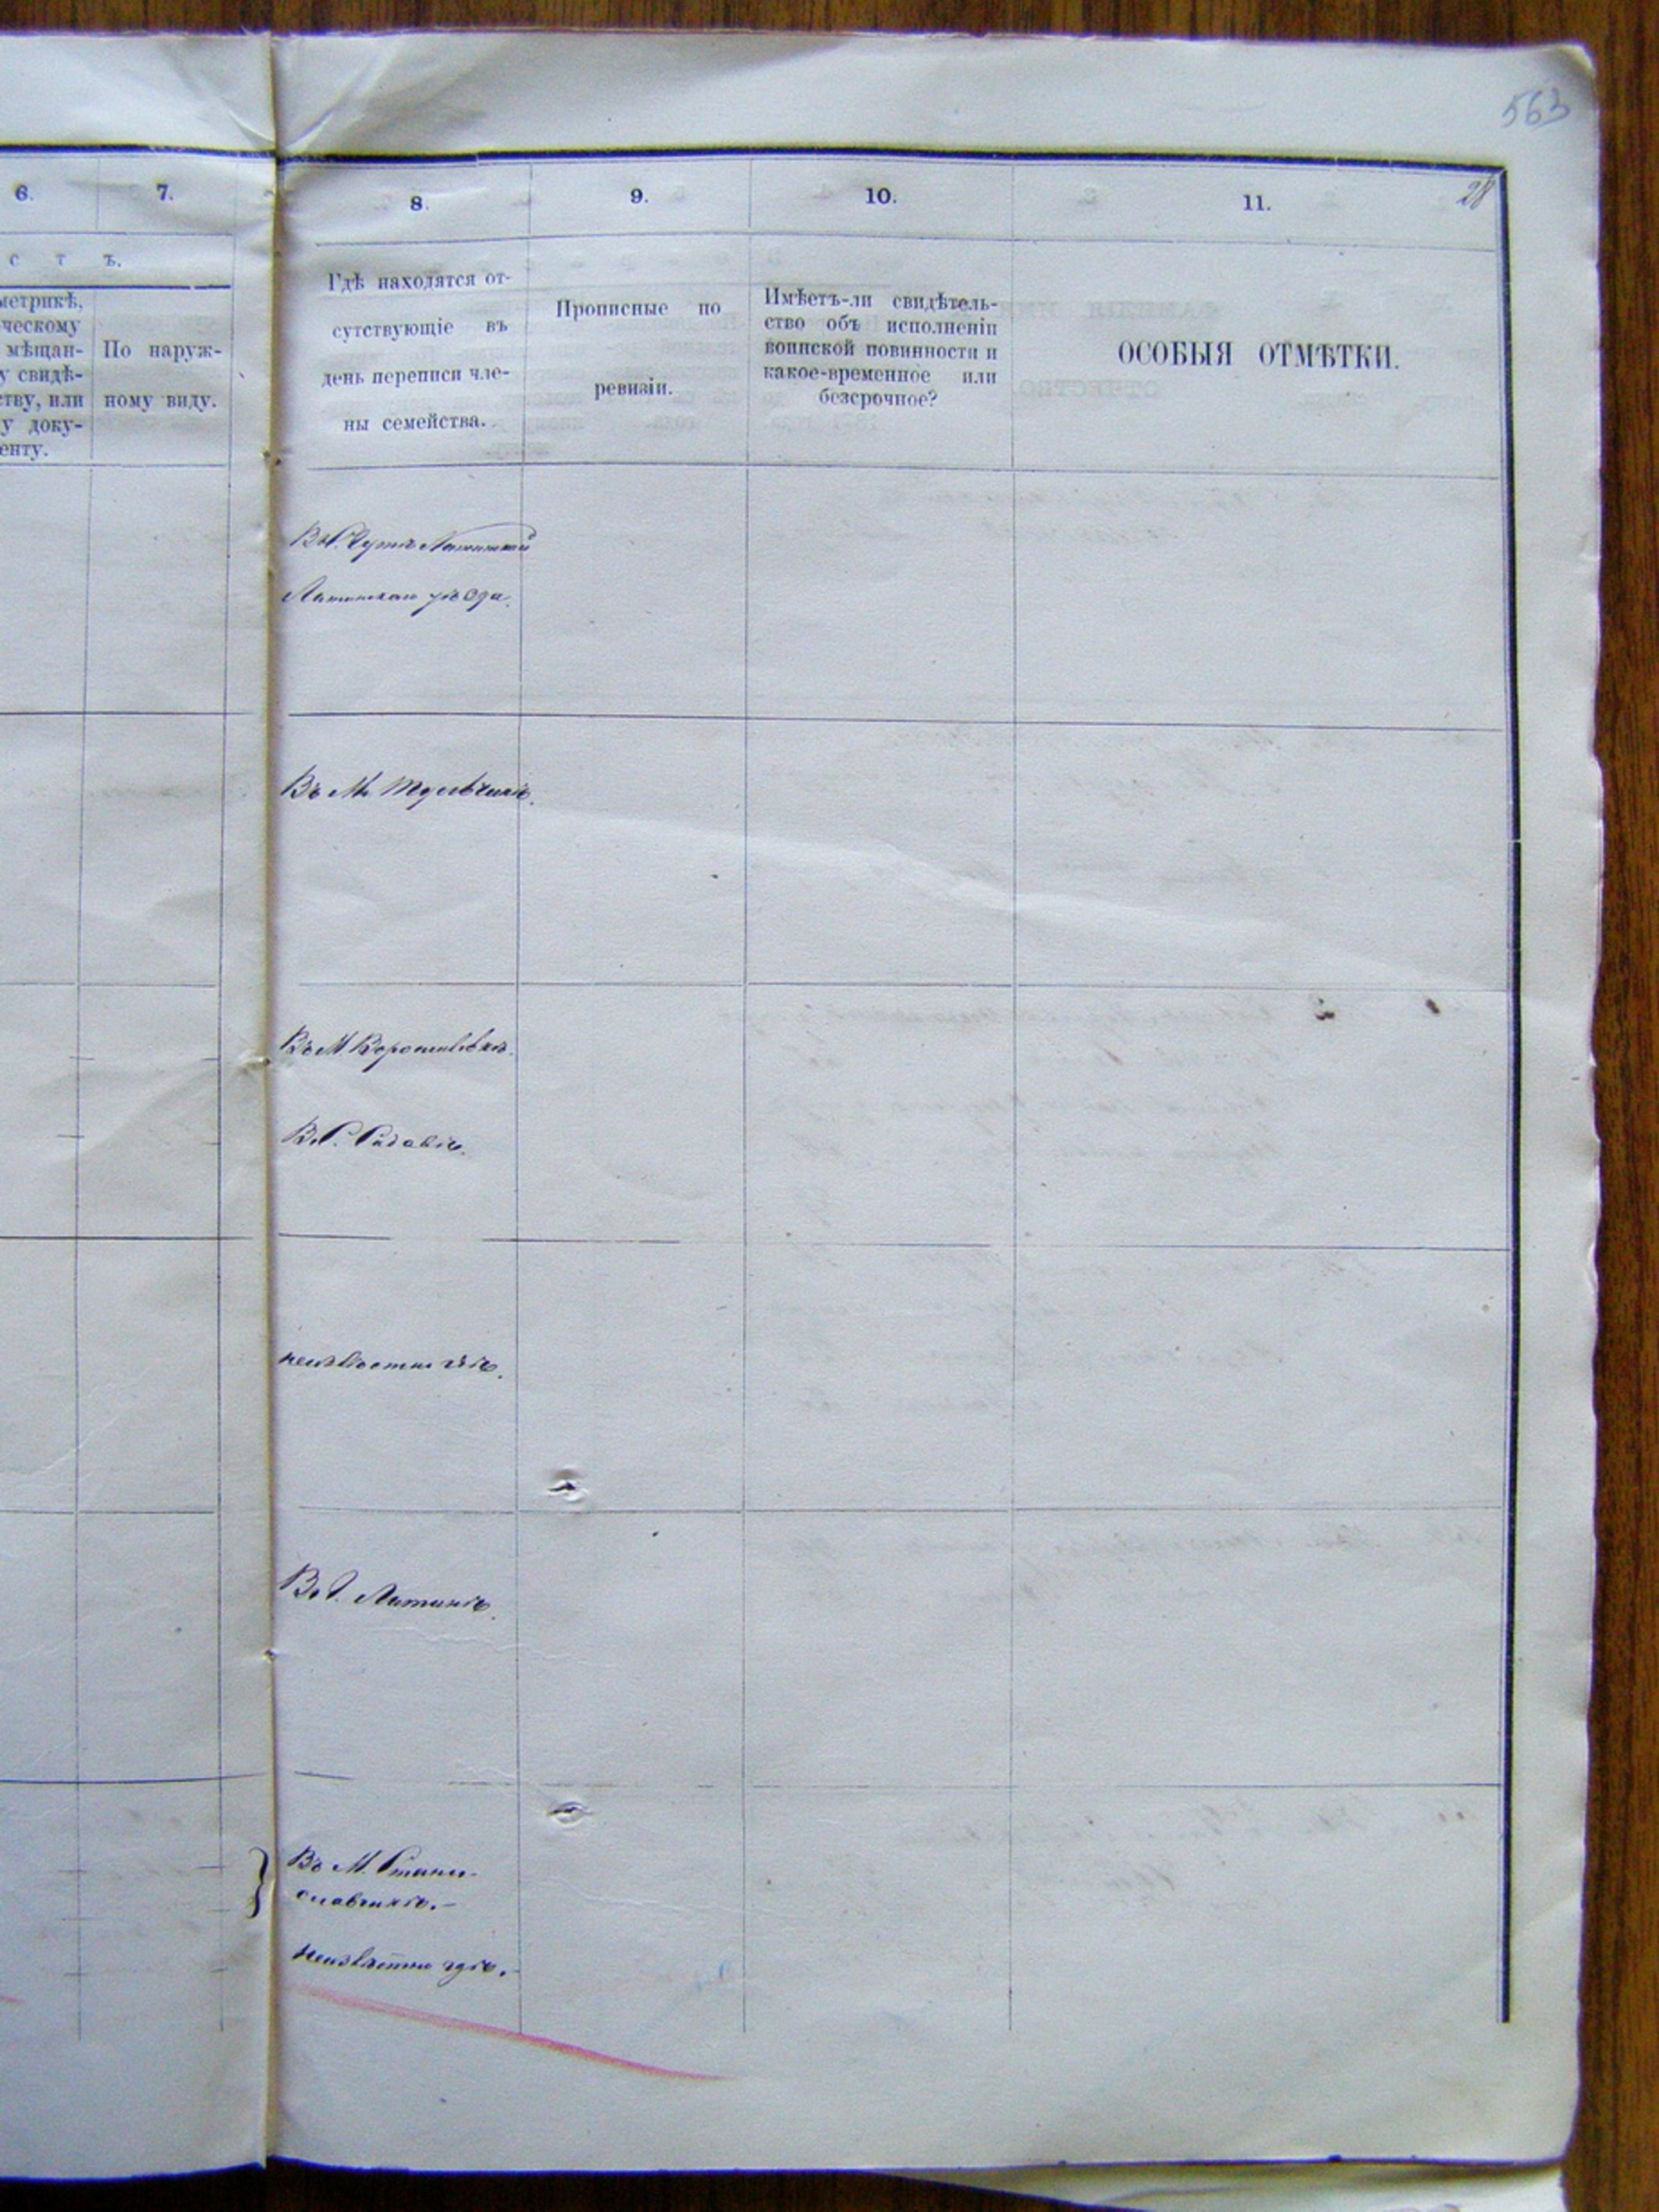 563
28
6.
7.
8.
9.
10.
11.
с т ъ.
метрикѣ,
ческому
мѣщан-
у свидѣ-
тву, или
у доку-
енту.
По наруж-
ному виду.
Гдѣ находятся от-
сутствующіе въ
день переписи чле-
ны семейства.
Прописные по
ревизіи.
Имѣетъ-ли свидѣтель-
ство объ исполненіи
воинской повинности и
какое-временное или
безсрочное?
ОСОБЫЯ ОТМѢТКИ.
Въ С.
Литинскаго уѣзда.
Въ М. Тульчинѣ.
Въ М Вороновицѣ.
В С.
неизвѣстно гдѣ.
В Г. Литинѣ.
Въ М. Стани-
славчикѣ.-
Неизвѣстно гдѣ.